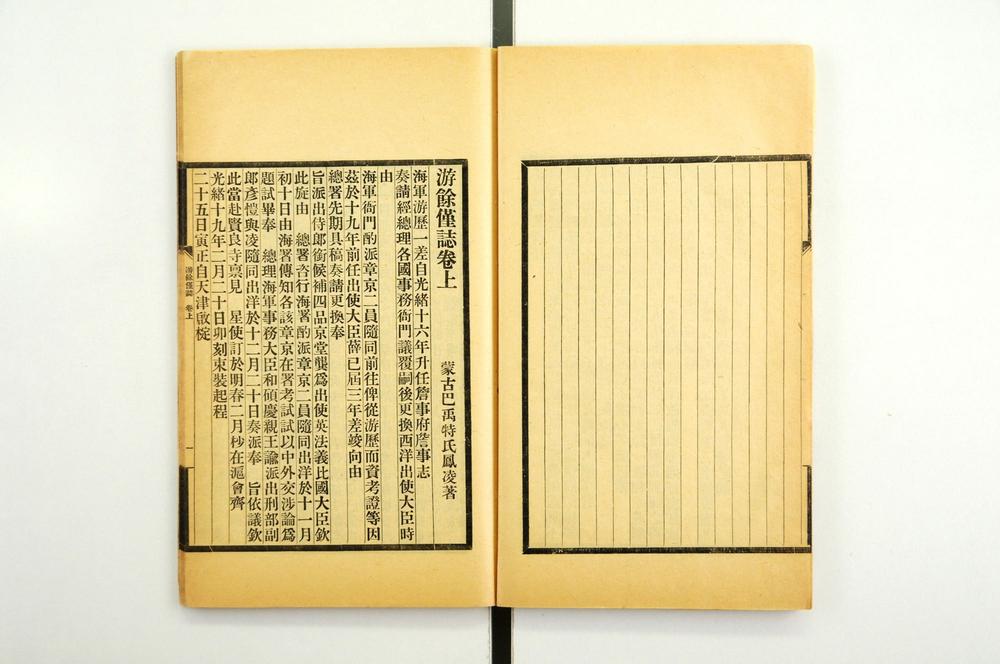 游餘僅誌卷上
蒙古巴禹特氏鳳凌著
海軍游歷一差自光緒十六年升任詹事府詹事志
奏請經總理各國事務衙門議覆嗣後更換西洋出使大臣時
由
海軍衙門酌派章京二員隨同前往俾從游歷而資考證等因
茲於十九年前任出使大臣薛已屆三年差竣向由
總署先期具稿奏請更換奉
旨派出侍郎銜候補四品京堂龔爲出使英法義比國大臣欽
此旋由 總署咨行海署酌派章京二員隨同出洋於十一月
初十日由海署傳知各該章京在署考試試以中外交涉論爲
題試畢奉 總理海軍事務大臣和碩慶親王諭派出刑部副
郎彥愷與凌隨同出洋於十二月二十日奏派奉 旨依議欽
此當赴賢良寺禀見 星使訂於明春二月杪在滬會齊
光緒十九年二月二十日卯刻束裝起程
二十五日寅正自天津啟椗
游餘僅誌 卷上
一